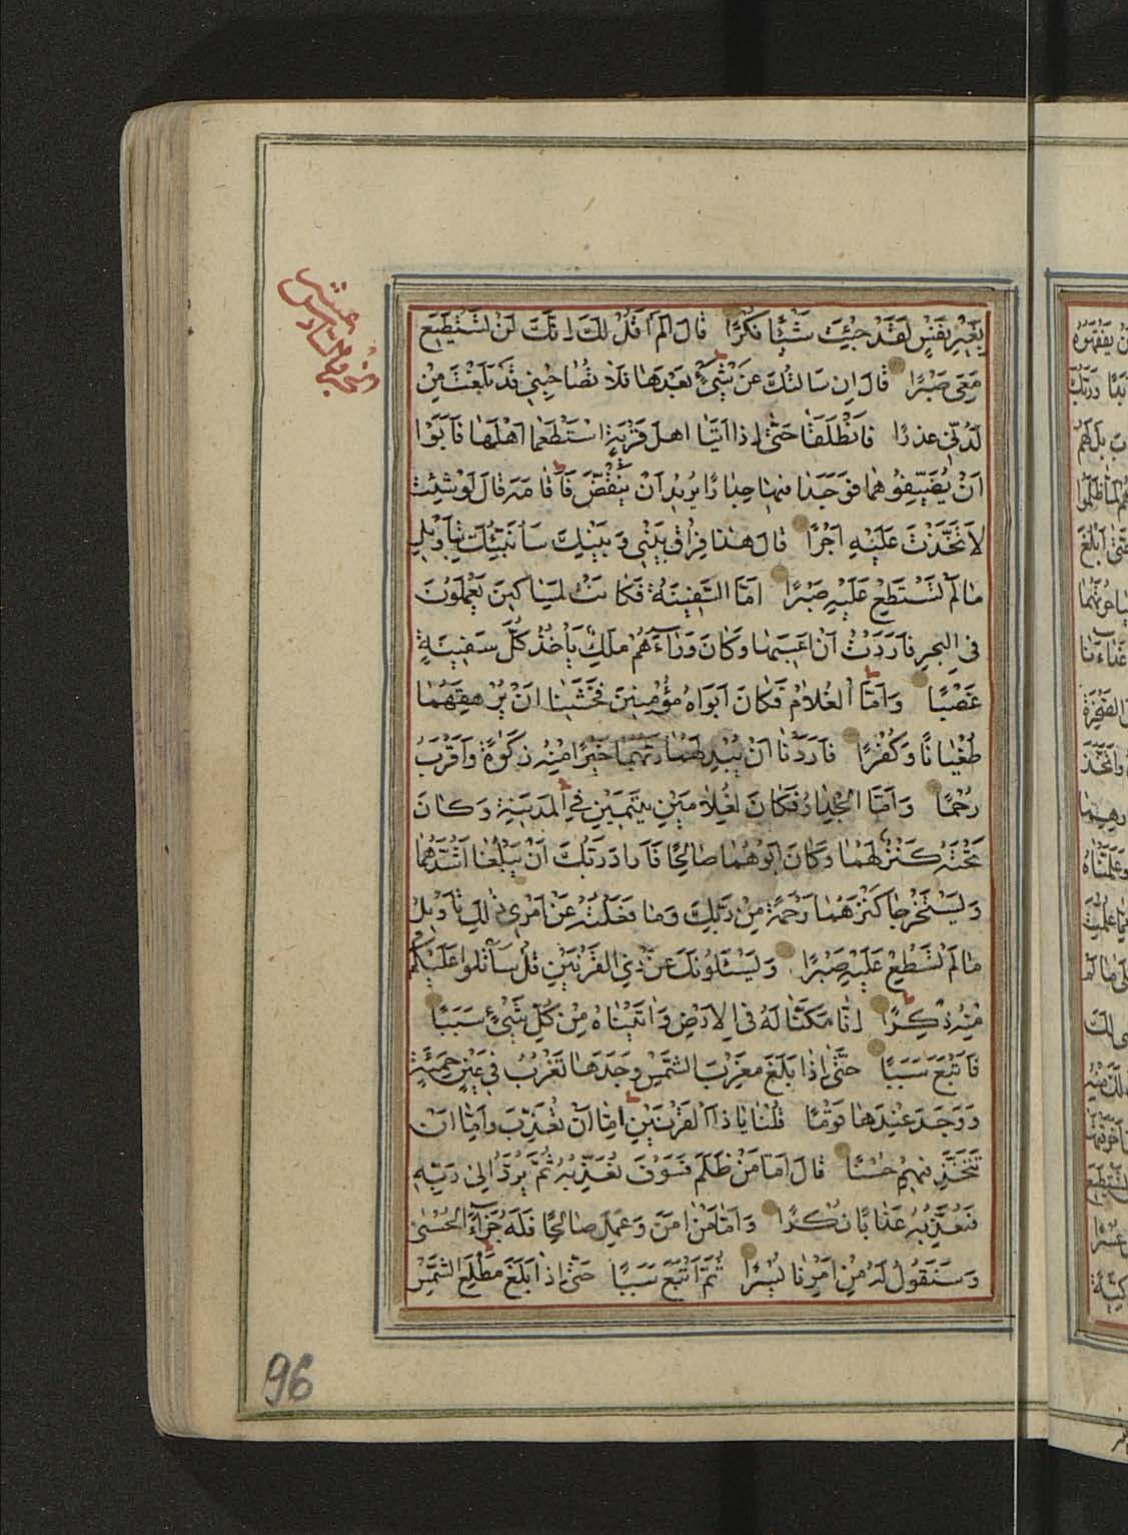 الجزء السادس عشر
بِغَيْرِ نَفْسٍ لَقَدْ جِئْتَ شَيْئًا نُكْرًا قَالَ أَلَمْ أَقُلْ لَكَ إِنَّكَ لَنْ تَسْتَطِيعَ
مَعِيَ صَبْرًا قَالَ إِنْ سَأَلْتُكَ عَنْ شَيْءٍ بَعْدَهَا فَلَا تُصَاحِبْنِي قَدْ بَلَغْتَ مِنْ
لَدُنِّي عُذْرًا فَانْطَلَقَا حَتَّى إِذَا أَتَيَا أَهْلَ قَرْيَةٍ اسْتَطْعَمَا أَهْلَهَا فَأَبَوْا
أَنْ يُضَيِّفُوهُمَا فَوَجَدَا فِيهَا جِدَارًا يُرِيدُ أَنْ يَنْقَضَّ فَأَقَامَهُ قَالَ لَوْ شِئْتَ
لَاتَّخَذْتَ عَلَيْهِ أَجْرًا قَالَ هَذَا فِرَاقُ بَيْنِي وَبَيْنِكَ سَأُنَبِّئُكَ بِتَأْوِيلِ
مَا لَمْ تَسْتَطِعْ عَلَيْهِ صَبْرًا أَمَّا السَّفِينَةُ فَكَانَتْ لِمَسَاكِينَ يَعْمَلُونَ
فِي الْبَحْرِ فَأَرَدْتُ أَنْ أَعِيبَهَا وَكَانَ وَرَاءَهُمْ مَلِكٌ يَأْخُذُ كُلَّ سَفِينَةٍ
غَصْبًا وَأَمَّا الْغُلَامُ فَكَانَ أَبَوَاهُ مُؤْمِنَيْنِ فَخَشِينَا أَنْ يُرْهِقَهُمَا
طُغْيَانًا وَكُفْرًا فَأَرَدْنَا أَنْ يُبْدِلَهُمَا رَبُّهُمَا خَيْرًا مِنْهُ زَكَوٰةً وَأَقْرَبَ
رُحْمًا وَأَمَّا الْجِدَارُ فَكَانَ لِغُلَامَيْنِ يَتِيمَيْنِ فِي الْمَدِينَةِ وَكَانَ
تَحْتَهُ كَنْزٌ لَهُمَا وَكَانَ أَبُوهُمَا صَالِحًا فَأَرَادَ رَبُّكَ أَنْ يَبْلُغَا أَشُدَّهُمَا
وَيَسْتَخْرِجَا كَنْزَهُمَا رَحْمَةً مِنْ رَبِّكَ وَمَا فَعَلْتُهُ عَنْ أَمْرِي ذَلِكَ تَأْوِيلُ
مَا لَمْ تَسْطِعْ عَلَيْهِ صَبْرًا وَيَسْئَلُونَكَ عَنْ ذِي الْقَرْنَيْنِ قُلْ سَأَتْلُوا عَلَيْكُمْ
مِنْهُ ذِكْرًا إِنَّا مَكَّنَّا لَهُ فِي الْأَرْضِ وَآتَيْنَاهُ مِنْ كُلِّ شَيْءٍ سَبَبًا
فَأَتْبَعَ سَبَبًا حَتَّى إِذَا بَلَغَ مَغْرِبَ الشَّمْسِ وَجَدَهَا تَغْرُبُ فِي عَيْنٍ حَمِئَةٍ
وَوَجَدَ عِنْدَهَا قَوْمًا قُلْنَا يَا ذَا الْقَرْنَيْنِ إِمَّا أَنْ تُعَذِّبَ وَإِمَّا أَنْ
تَتَّخِذَ فِيهِمْ حُسْنًا قَالَ أَمَّا مَنْ ظَلَمَ فَسَوْفَ نُعَذِّبُهُ ثُمَّ يُرَدُّ إِلَى رَبِّهِ
فَيُعَذِّبُهُ عَذَابًا نُكْرًا وَأَمَّا مَنْ آمَنَ وَعَمِلَ صَالِحًا فَلَهُ جَزَاءً الْحُسْنَى
وَسَنَقُولُ لَهُ مِنْ أَمْرِنَا يُسْرًا ثُمَّ أَتْبَعَ سَبَبًا حَتَّى إِذَا بَلَغَ مَطْلِعَ الشَّمْسِ
96